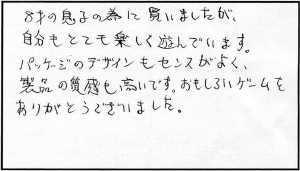 8才の息子の為に買いましたが、
自分もとても楽しく遊んでいます。
パッケージのデザインもセンスがよく、
製品の質感も高いです。おもしろいゲームを
ありがとうございました。